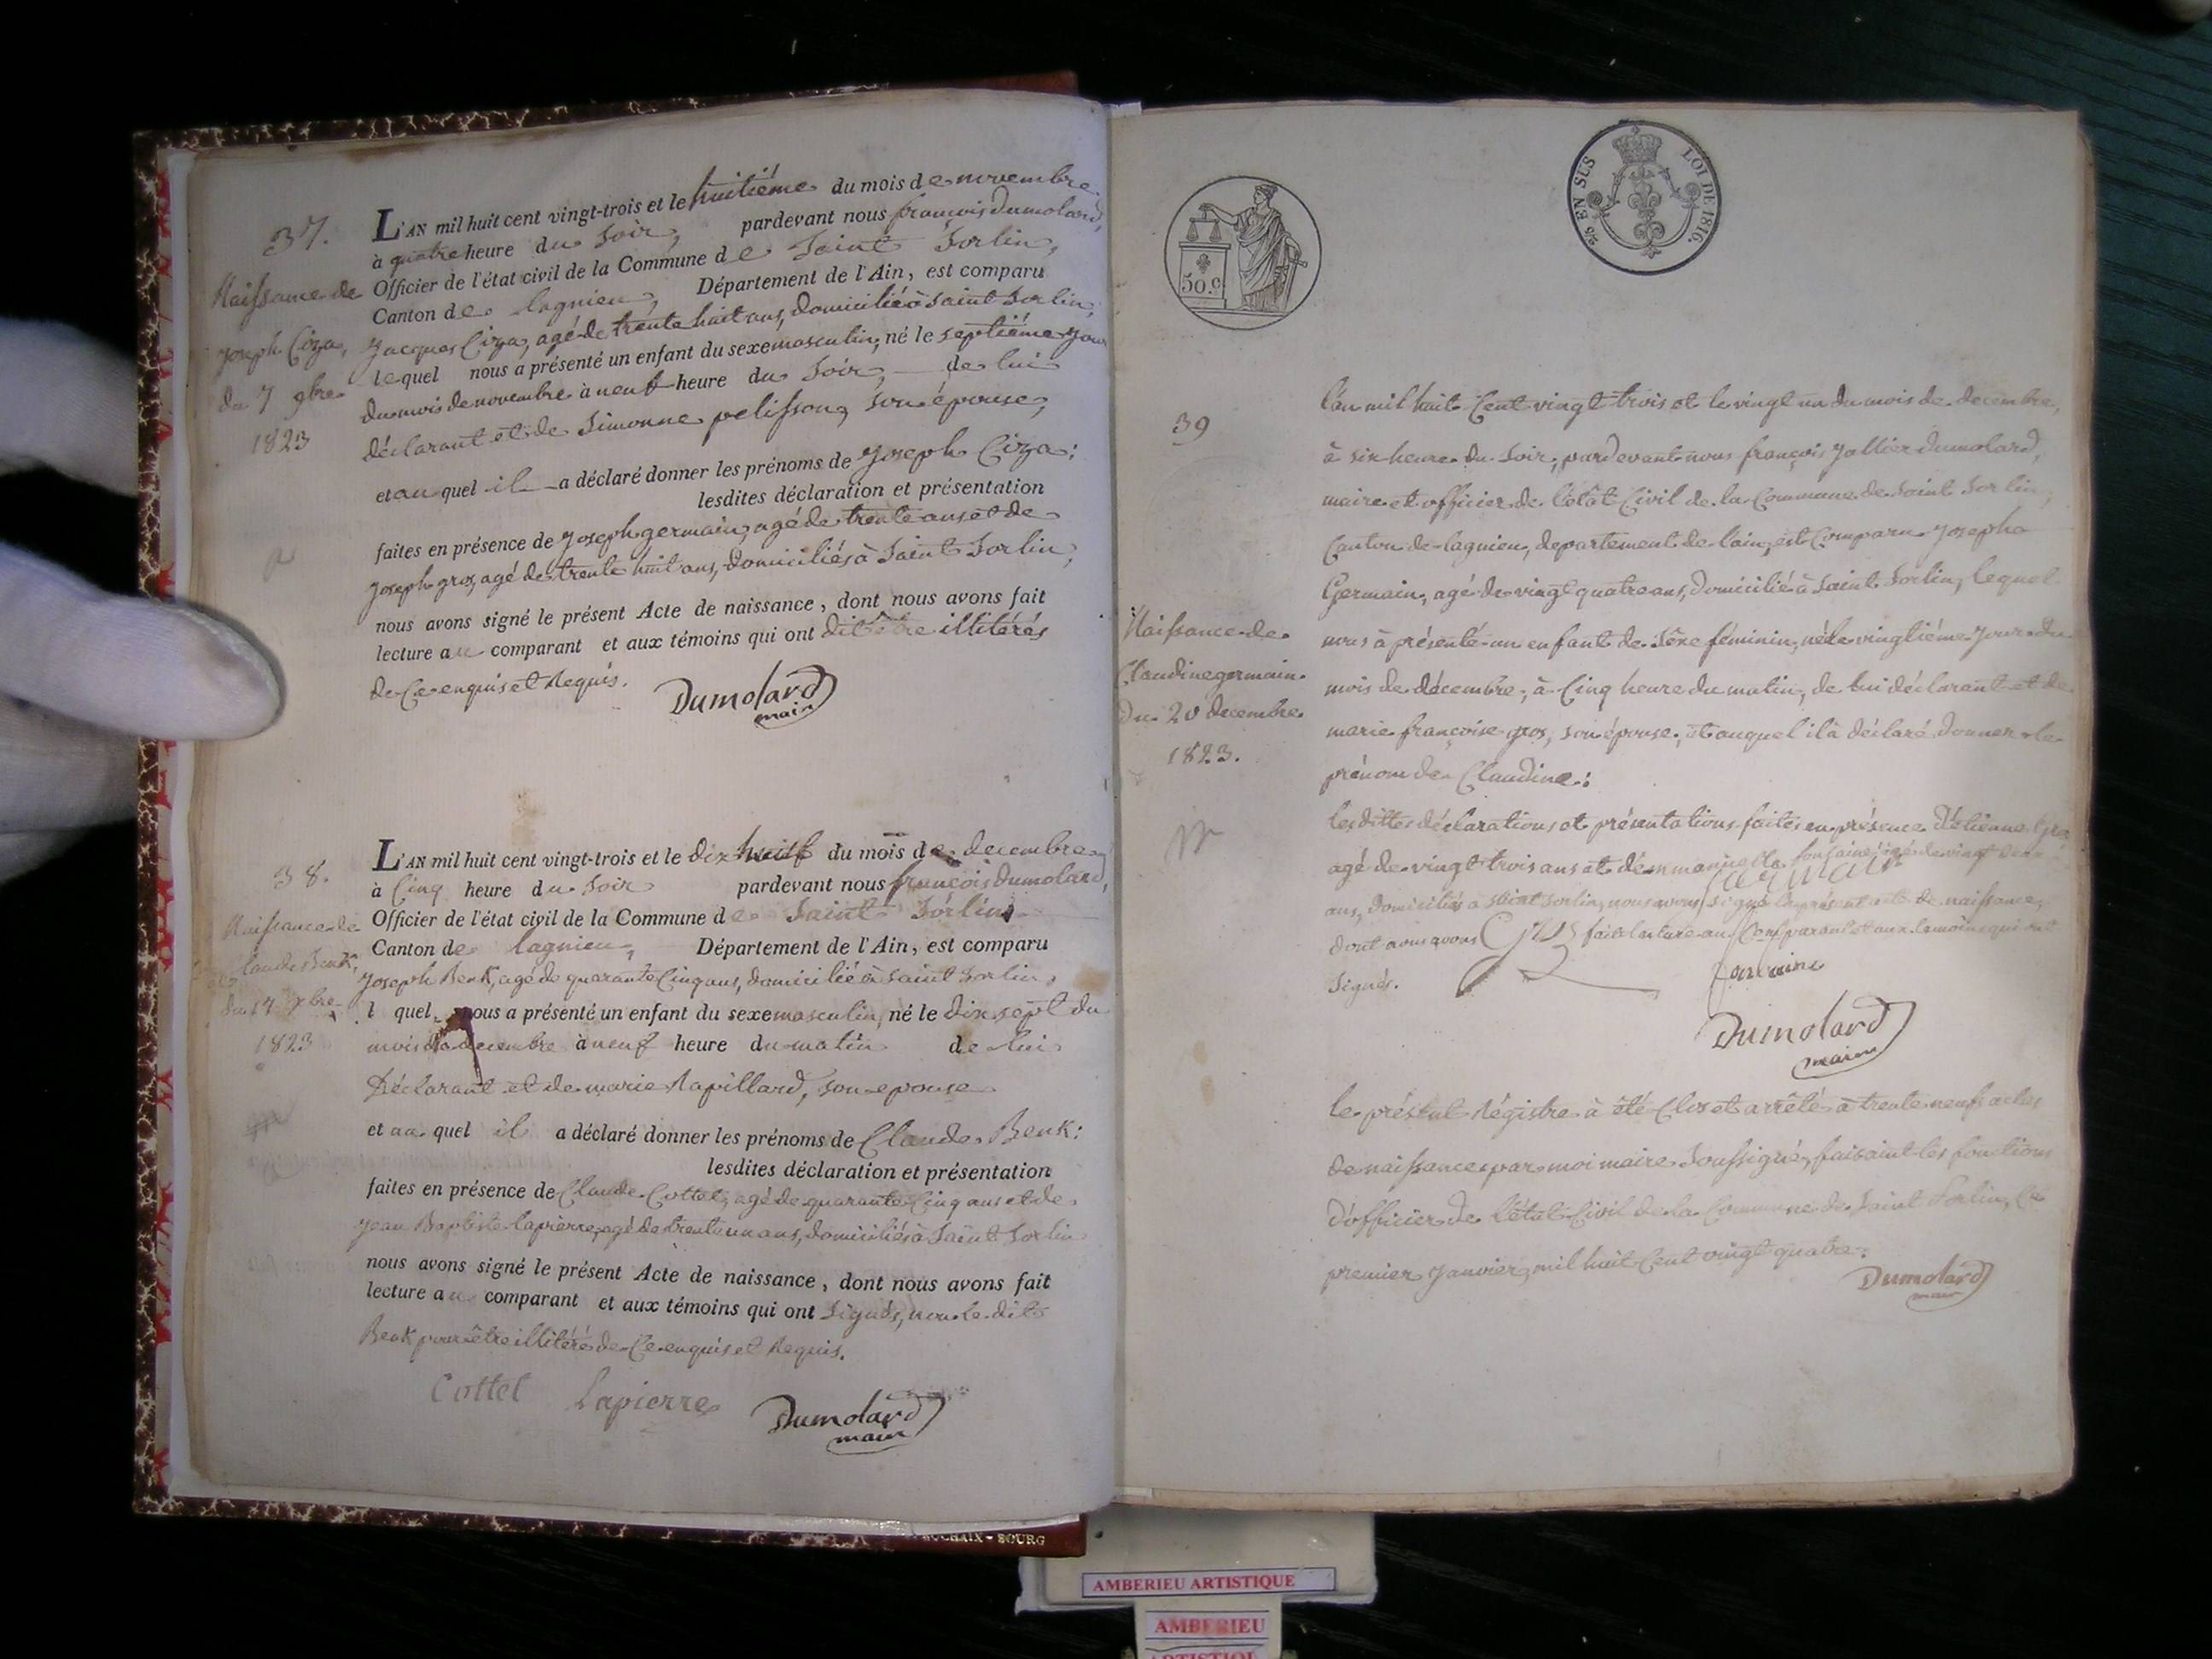 37.
Naissance de
Joseph Ciza,
du 7 9bre
1823
L'AN mil huit cent vingt-trois et le huitième du mois de novembre
à quatre heure du soir, pardevant nous françois Dumolard,
Officier de l'état civil de la Commune de Saint Sorlin,
Canton de lagnieu, Département de l'Ain, est comparu
Jacques Ciza, agé de trente huit ans, domicilié à Saint Sorlin,
lequel nous a présenté un enfant du sexe masculin, né le septième jour
du mois de novembre à neuf heure du soir, de lui
déclarant et de Simonne pelisson, son épouse,
et au quel il a déclaré donner les prénoms de Joseph Ciza:
lesdites déclaration et présentation
faites en présence de Joseph germain, agé de trente ans et de
Joseph gros, agé de trente huit ans, domiciliés à Saint Sorlin,
nous avons signé le présent Acte de naissance, dont nous avons fait
lecture au comparant et aux témoins qui ont dit être illitérés
de Ce enquis et Requis.
Dumolard
maire
38.
Naissance de
Claude Benk,
du 17 xbre
1823
L'AN mil huit cent vingt-trois et le dix huit du mois de decembre
à Cinq heure du soir pardevant nous françois Dumolard,
Officier de l'état civil de la Commune de Saint Sorlin
Canton de lagnieu, Département de l'Ain, est comparu
Joseph Benk, agé de quarante Cinq ans, domicilié à Saint Sorlin,
l quel nous a présenté un enfant du sexe masculin, né le dix sept du
mois de decembre à neuf heure du matin de lui
Déclarant et de marie Rapillard, son epouse
et au quel il a déclaré donner les prénoms de Claude Benk:
lesdites déclaration et présentation
faites en présence de Claude Cottel, agé de quarante Cinq ans et de
Jean Baptiste lapierre, agé de trente un ans, domiciliés à Saint Sorlin
nous avons signé le présent Acte de naissance, dont nous avons fait
lecture au comparant et aux témoins qui ont signés, non le dit
Benk pour être illitéré de Ce enquis et Requis.
Cottel lapierre Dumolard
maire
50.c
2/5 EN SUS LOI DE 1816.
39
Naissance de
Claudine germain
Du 20 decembre
1823.
l'an mil huit Cent vingt trois et le vingt un du mois de decembre,
à six heure du soir, pardevant nous françois Jallier Dumolard,
maire et officier de l'état Civil de la Commune de Saint Sorlin,
Canton de lagnieu, departement de l'ain, est Comparu Joseph
Germain, agé de vingt quatre ans, domicilié à Saint Sorlin, lequel
nous à présenté un enfant de sexe féminin, né le vingtième jour du
mois de décembre, à Cinq heure du matin, de lui déclarant et de
marie françoise gros, son épouse, et auquel il à déclaré donner le
prénom de Claudine:
les dittes déclarations et présentations faites en présence d'étienne Gros
agé de vingt trois ans et fontaine, agé de vingt deux
ans, domiciliés a Saint Sorlin, nous avons signé le présent acte de naissance,
dont nous avons fait lecture au Comparant et aux temoins qui ont
signés.
Germain
Gros
fontaine
Dumolard
maire
le présent Régistre à été Clos et arrêté à trente neuf actes
de naissance par moi maire soussigné, faisaint les fonctions
d'officier de l'état Civil de la Commune de Saint Sorlin, Ce
premier Janvier, mil huit Cent vingt quatre.
Dumolard
maire
BOURG
AMBERIEU ARTISTIQUE
AMBERIEU
ARTISTIQUE